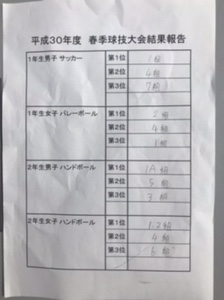 平成30年度 春季球技大会結果報告
1年生男子 サッカー 第1位 1組
第2位 4組
第3位 7組
1年生女子 バレーボール 第1位 2組
第2位 4組
第3位 1組
2年生男子 ハンドボール 第1位
第2位 5組
第3位 3組
2年生女子 ハンドボール 第1位 1.2組
第2位 4組
第3位